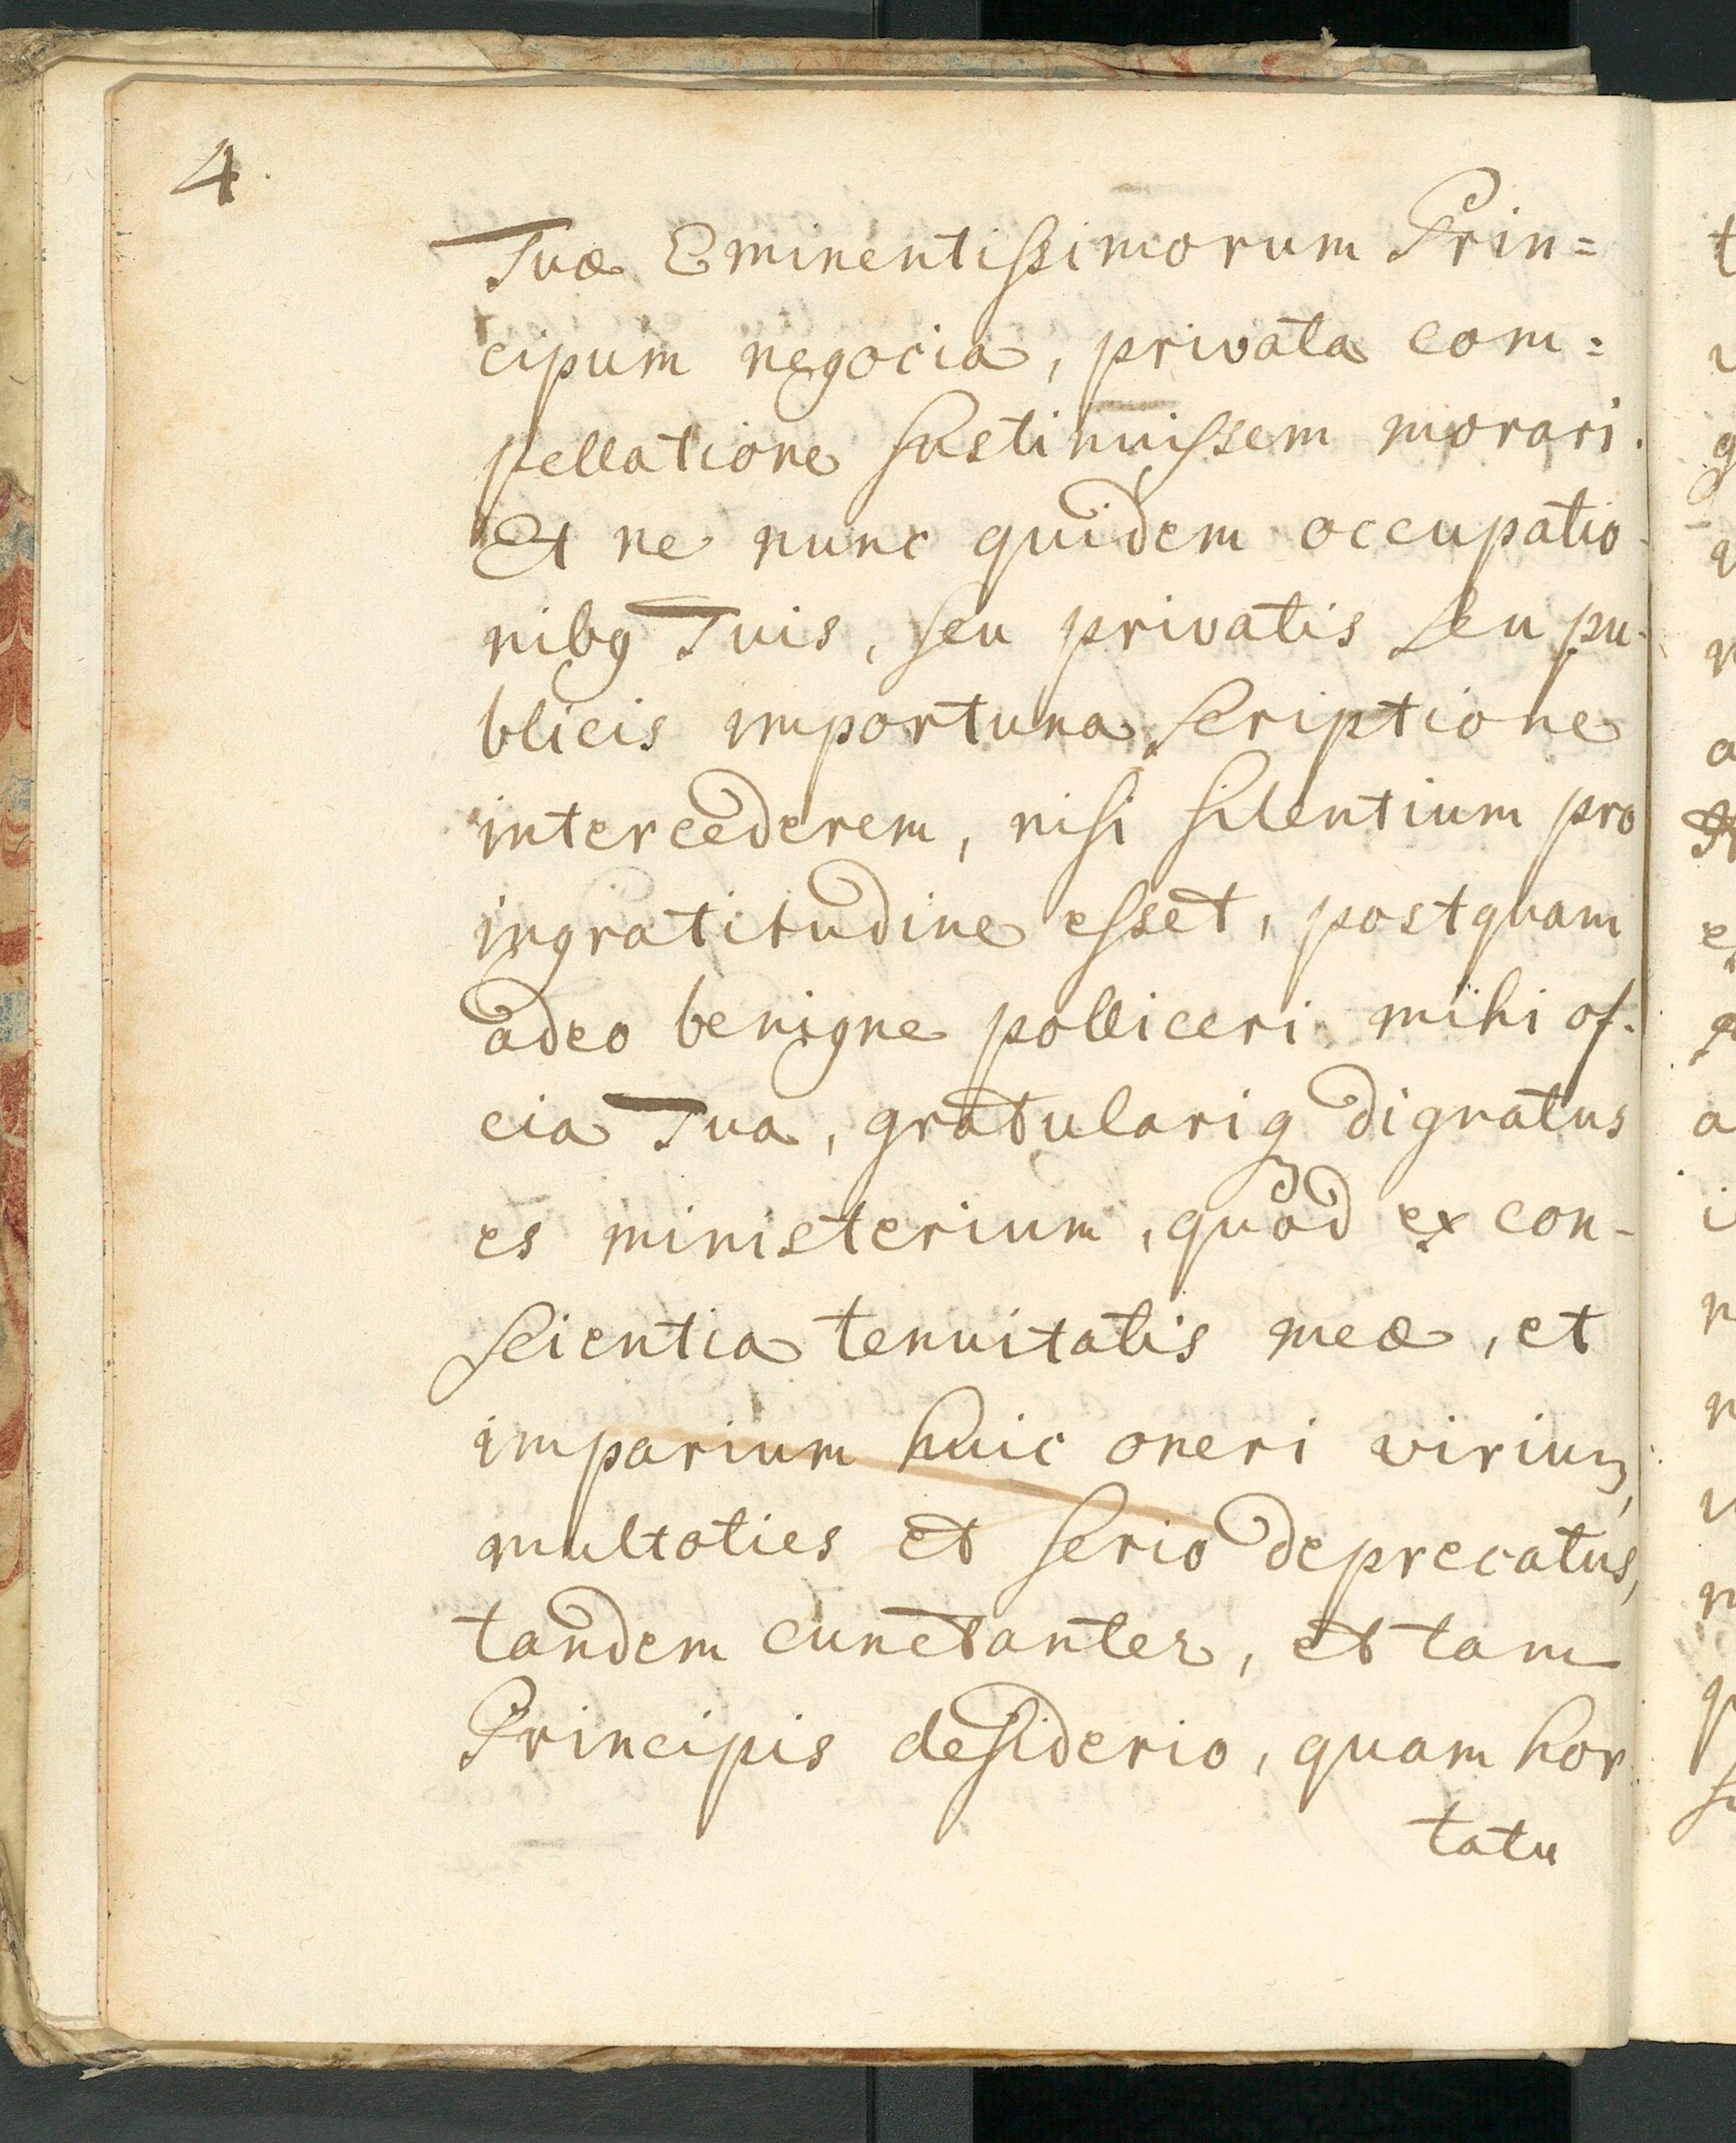 4.
Tuæ Eminentissimorum Prin=
cipum negocia, privata com=
pellatione sustinuissem morari.
Et ne nunc quidem occupatio-
nibq Tuis, seu privatis seu pu-
blicis importuna scriptione
intercederem, nisi silentium pro
ingratitudine esset, postquam
adeo benigne polliceri mihi of-
cia Tua, gratulariq dignatus
es ministerium, quòd ex con-
scientia tenuitatis meæ, et
imparium huic oneri virium,
multoties et serio deprecatus,
tandem cunctanter, et tam
Principis desiderio, quam hor-
tatu